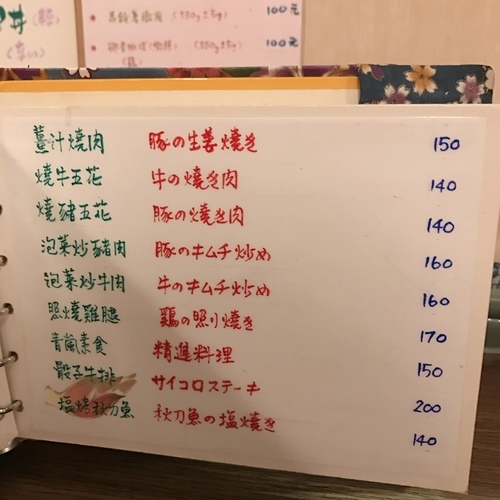 丼
100元
100元
薑汁燒肉 豚の生姜燒き 150
燒牛五花 牛の燒き肉 140
燒豬五花 豚の燒き肉 140
泡菜炒豬肉 豚のキムチ炒め 160
泡菜炒牛肉 牛のキムチ炒め 160
照燒雞腿 鶏の照り燒き 170
青嵐素食 精進料理 150
骰子牛排 サイコロステーキ 200
塩烤秋刀魚 秋刀魚の塩燒き 140